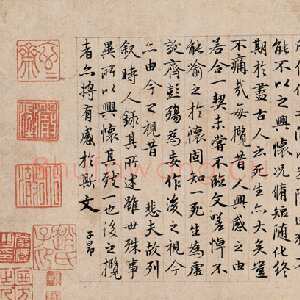 能不以之興懷况脩短随化終
期於盡古人云死生亦大矣豈
不痛哉每攬昔人興感之由
若合一契未嘗不臨文嗟悼不
能喻之於懷固知一死生為虛
誕齊彭殤為妄作後之視今
亦由今之視昔 悲夫故列
叙時人録其所述雖世殊事
異所以興懷其致一也後之攬
者亦將有感於斯文
子昂